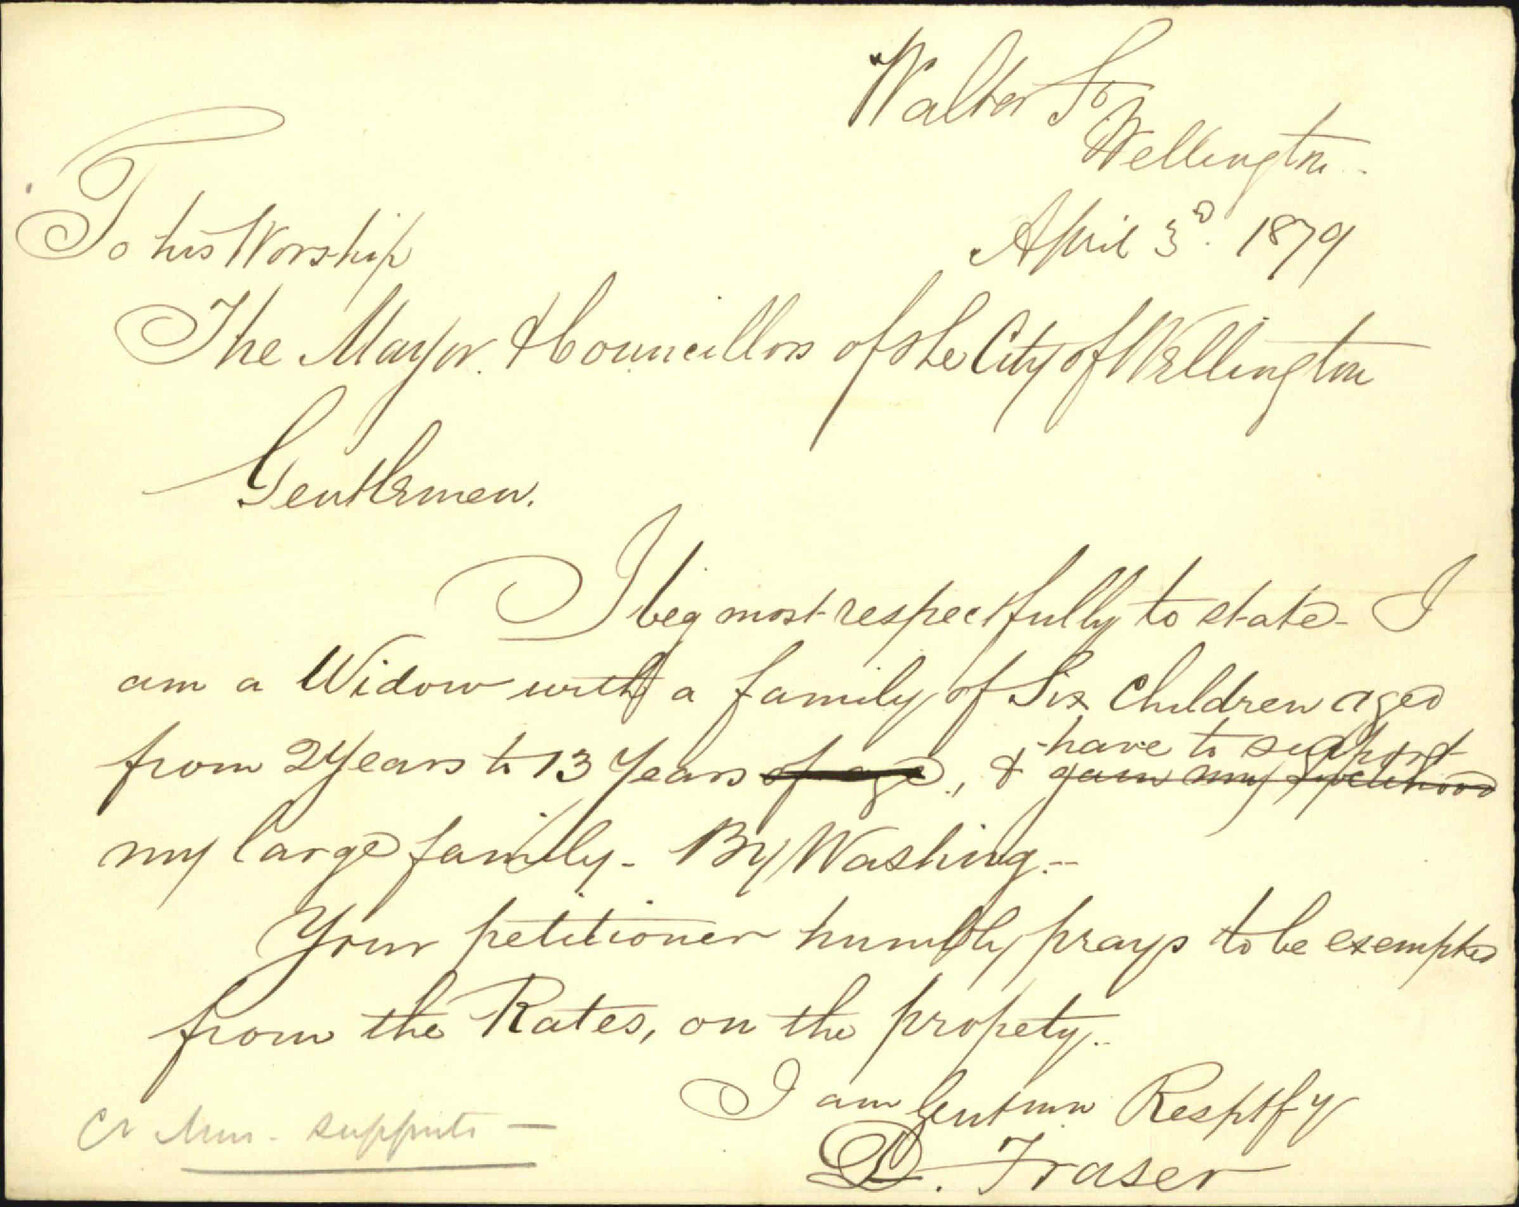 Walter St
Wellington
To his Worship
April 3d. 1879
The Mayor. & Councillors of the City of Wellington
Gentlemen.
I beg most respectfully to state - I
am a Widow with a family of Six Children aged
have to support
from 2 Years to 13 Years of age, & gain my livelihood
my large family - By Washing. -
Your petitioner humbly prays to be exempted
from the Rates, on the propety.
I am Gentmn Respectfy
D. Fraser
Cr supports -